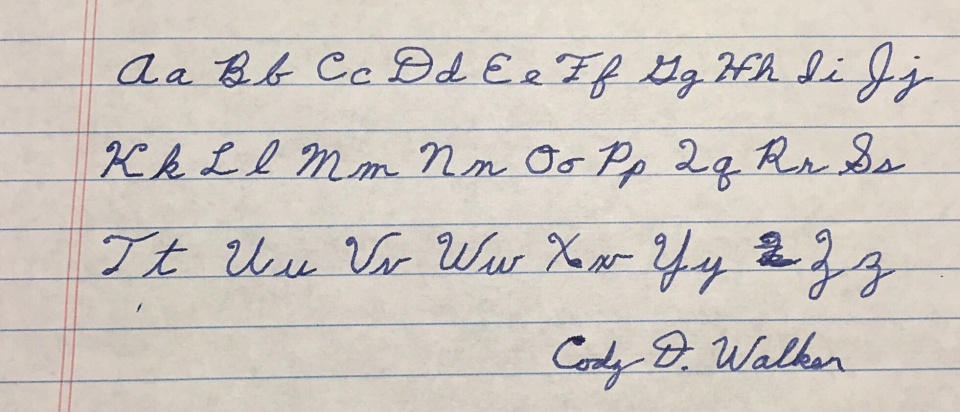 Aa Bb Cc Dd Ee Ff Gg Hh Ii Jj
Kk Ll Mm Nn Oo Pp Qq Rr Ss
Tt Uu Vv Ww Xx Yy Zz
Cody D. Walker